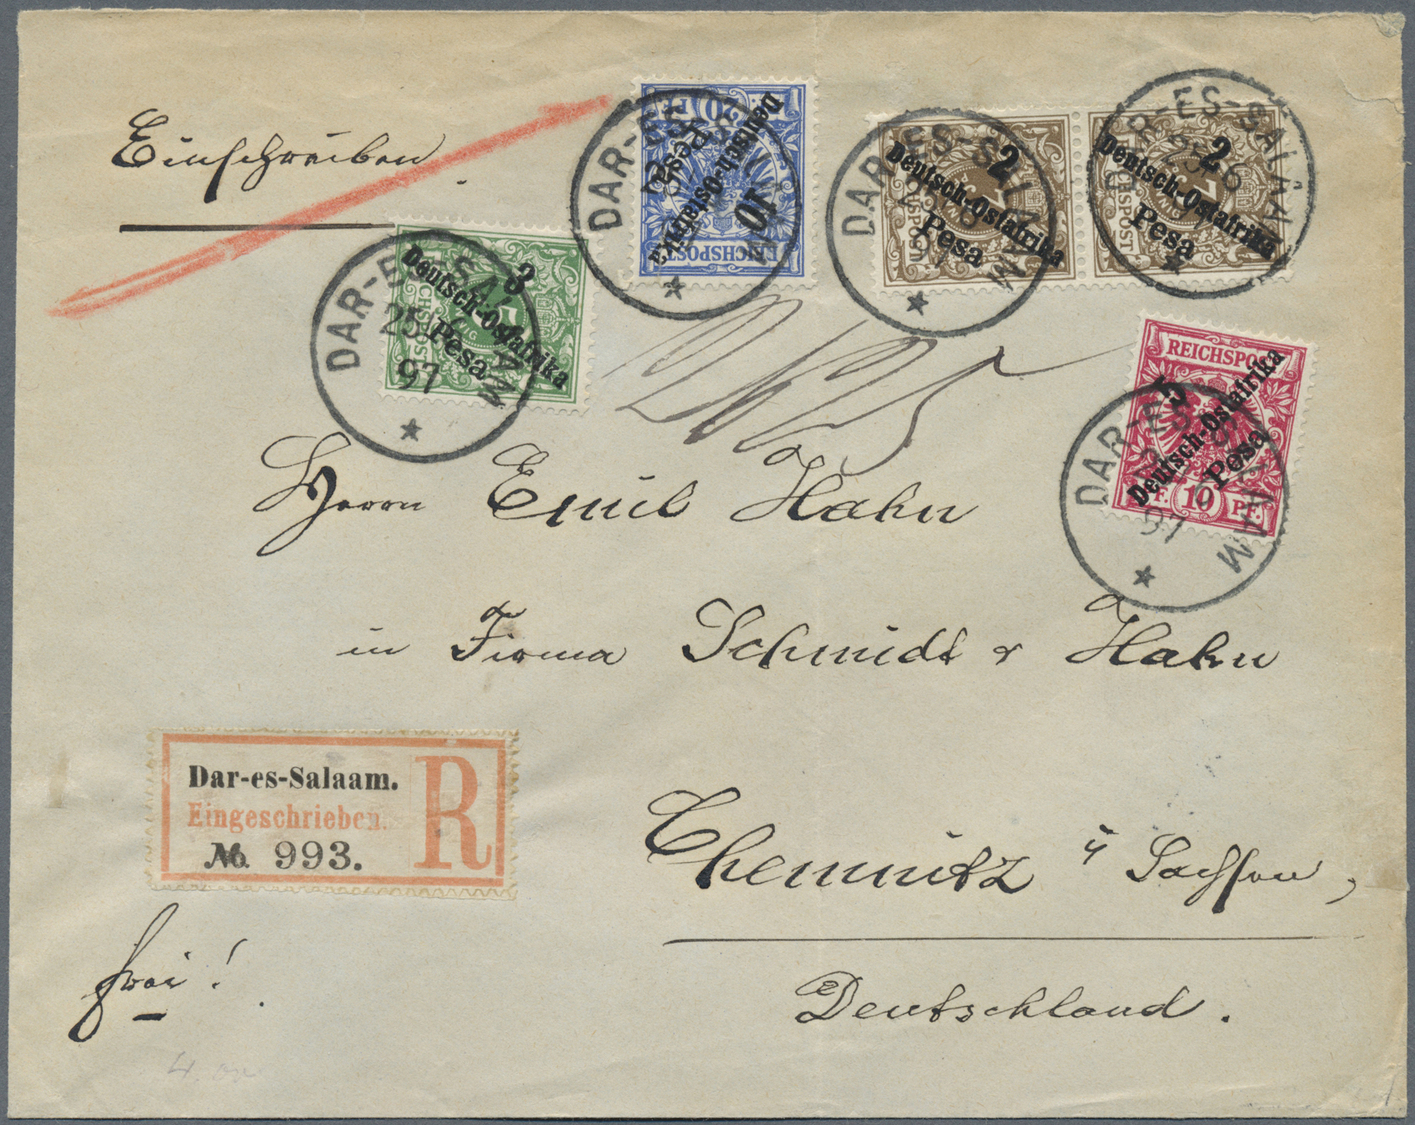 Einschreiben
20 PF.
10
Deutsch-Ostafrika
Pesa
REICHSPOST
DAR-ES-SALAAM
2
Deutsch-Ostafrika
Pesa
DAR-ES-SALAAM
25/6
97
2
Deutsch-Ostafrika
Pesa
REICHSPOST
DAR-ES-SALAAM
25/6
3
Deutsch-Ostafrika
Pesa
DAR-ES-SALAAM
25/6
97
REICHSPOST
5
Deutsch-Ostafrika
Pesa
PF. 10 PF.
DAR-ES-SALAAM
97
Herrn Emil Hahn
in Firma Schmidt & Hahn
Dar-es-Salaam.
Eingeschrieben.
R
No. 993.
Chemnitz i/ Sachsen,
frei!
Deutschland.